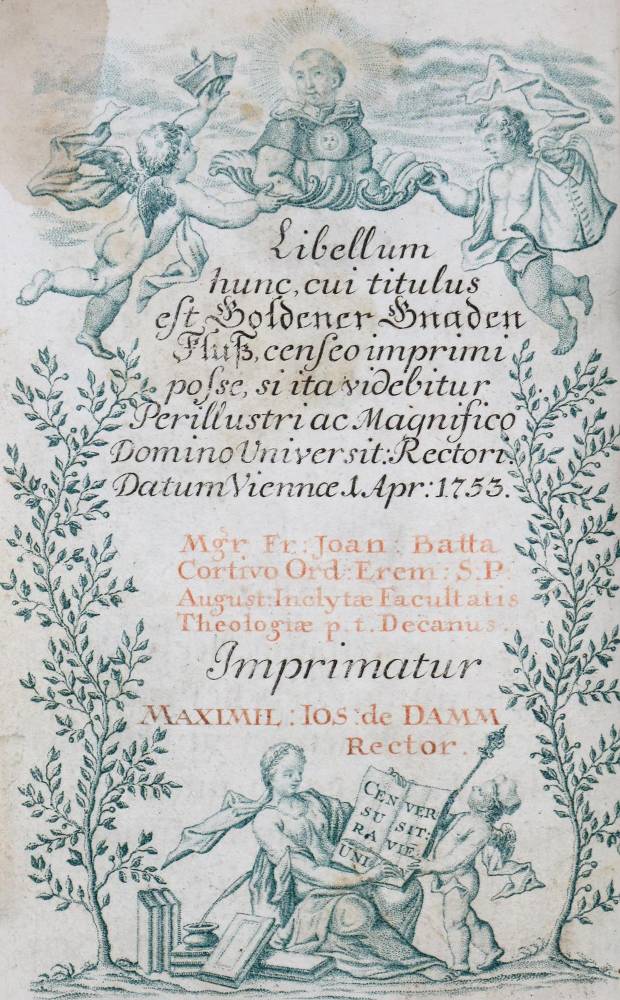 Libellum
hunc, cui titulus
est Goldener Gnaden
Fluß, censeo imprimi
posse, si ita videbitur
Perillustri ac Magnifico
Domino Universit: Rectori.
Datum Viennæ 1 Apr: 1753.
Mgr Fr: Joan: Batta
Cortivo Ord: Erem: S.P.
August: Inclytæ Facultatis
Theologiæ p.t. Decanus.
Imprimatur
MAXIMIL: IOS: de DAMM
Rector.
CEN
SU
RA
UNI
VER
SIT:
VIE